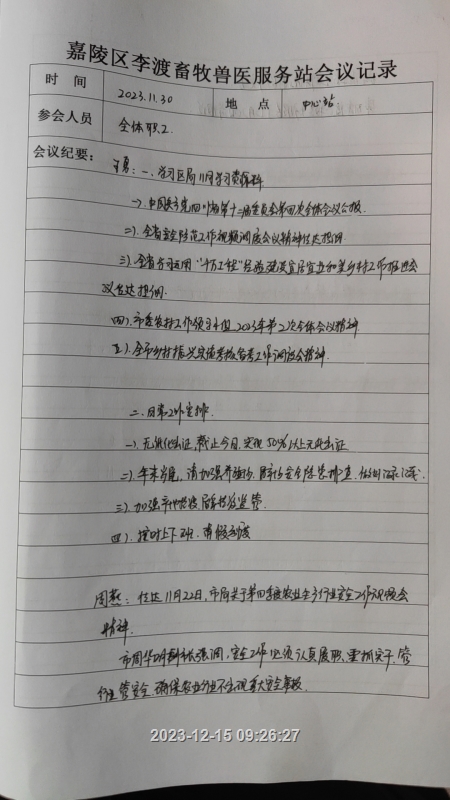 嘉陵区李渡畜牧兽医服务站会议记录
时 间 2023.11.30 地 点 中心站
参会人员 全体职工.
会议纪要: 一、学习区局11月学习资料
一). 中国共产党四川省第十二届委员会第四次全体会议公报.
二). 全省安全防范工作视频调度会议精神传达提纲
三). 全省学习运用“千万工程”经验建设宜居宜业和美乡村工作推进会
议传达提纲.
四). 市委农村工作领导小组2023年第2次全体会议精神
五). 全市乡村振兴实绩考核备考工作调度会精神.
二. 日常工作安排.
一). 无纸化出证, 截止今日, 实现50%以上无纸化出证
二). 年末岁尾, 请加强养殖场, 安全隐患排查.
三). 加强产地检疫屠宰检疫监管.
四). 按时上下班, 请假制度
周燕: 传达11月22日, 市局关于第四季度农业全行业安全工作视频会
精神.
强调, 安全工作必须认真履职, 重抓实干, 管
行业管安全, 确保农业行业不出现重大安全事故.
2023-12-15 09:26:27